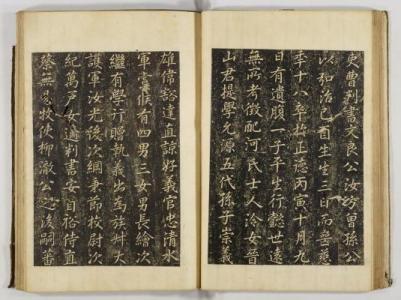 吏曹判書文良公汝昉曾孫公
以弘治己酉生生三日而喪慈
年十八卒於正德丙寅十月九
日有遺腹一子平生行懿世遠
無所考徵配河氏士人淰女晉
山君提學允源五代孫子崇義
雄偉豁達直諒好義官忠清水
軍虞候有四男三女男長繪次
繼有學行贈執義出爲族叔大
護軍汝光後次綱秉節校尉次
紀萬戶女適判書安自裕侍直
蔡無易牧使柳澈公之後嗣蕃